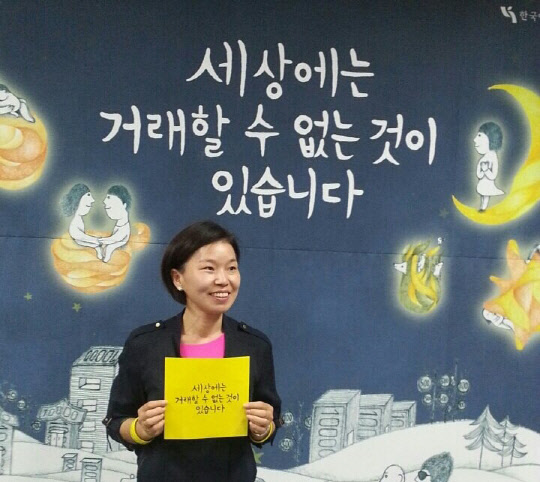 한국
세상에는
거래할 수 없는 것이
있습니다
세상에는
거래할 수 없는 것이
있습니다